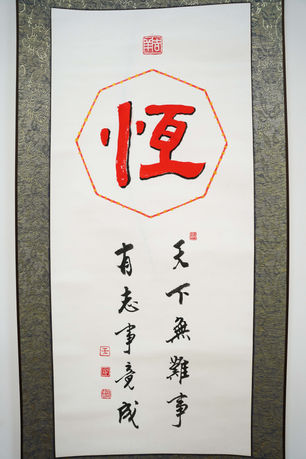 恆
天下無難事
有志事竟成